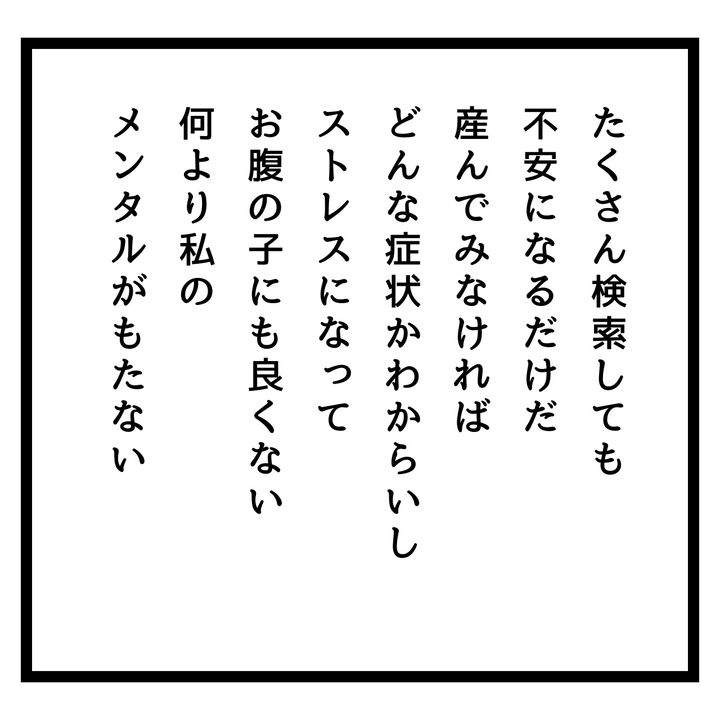 たくさん検索しても
不安になるだけだ
産んでみなければ
どんな症状かわからいし
ストレスになって
お腹の子にも良くない
何より私の
メンタルがもたない